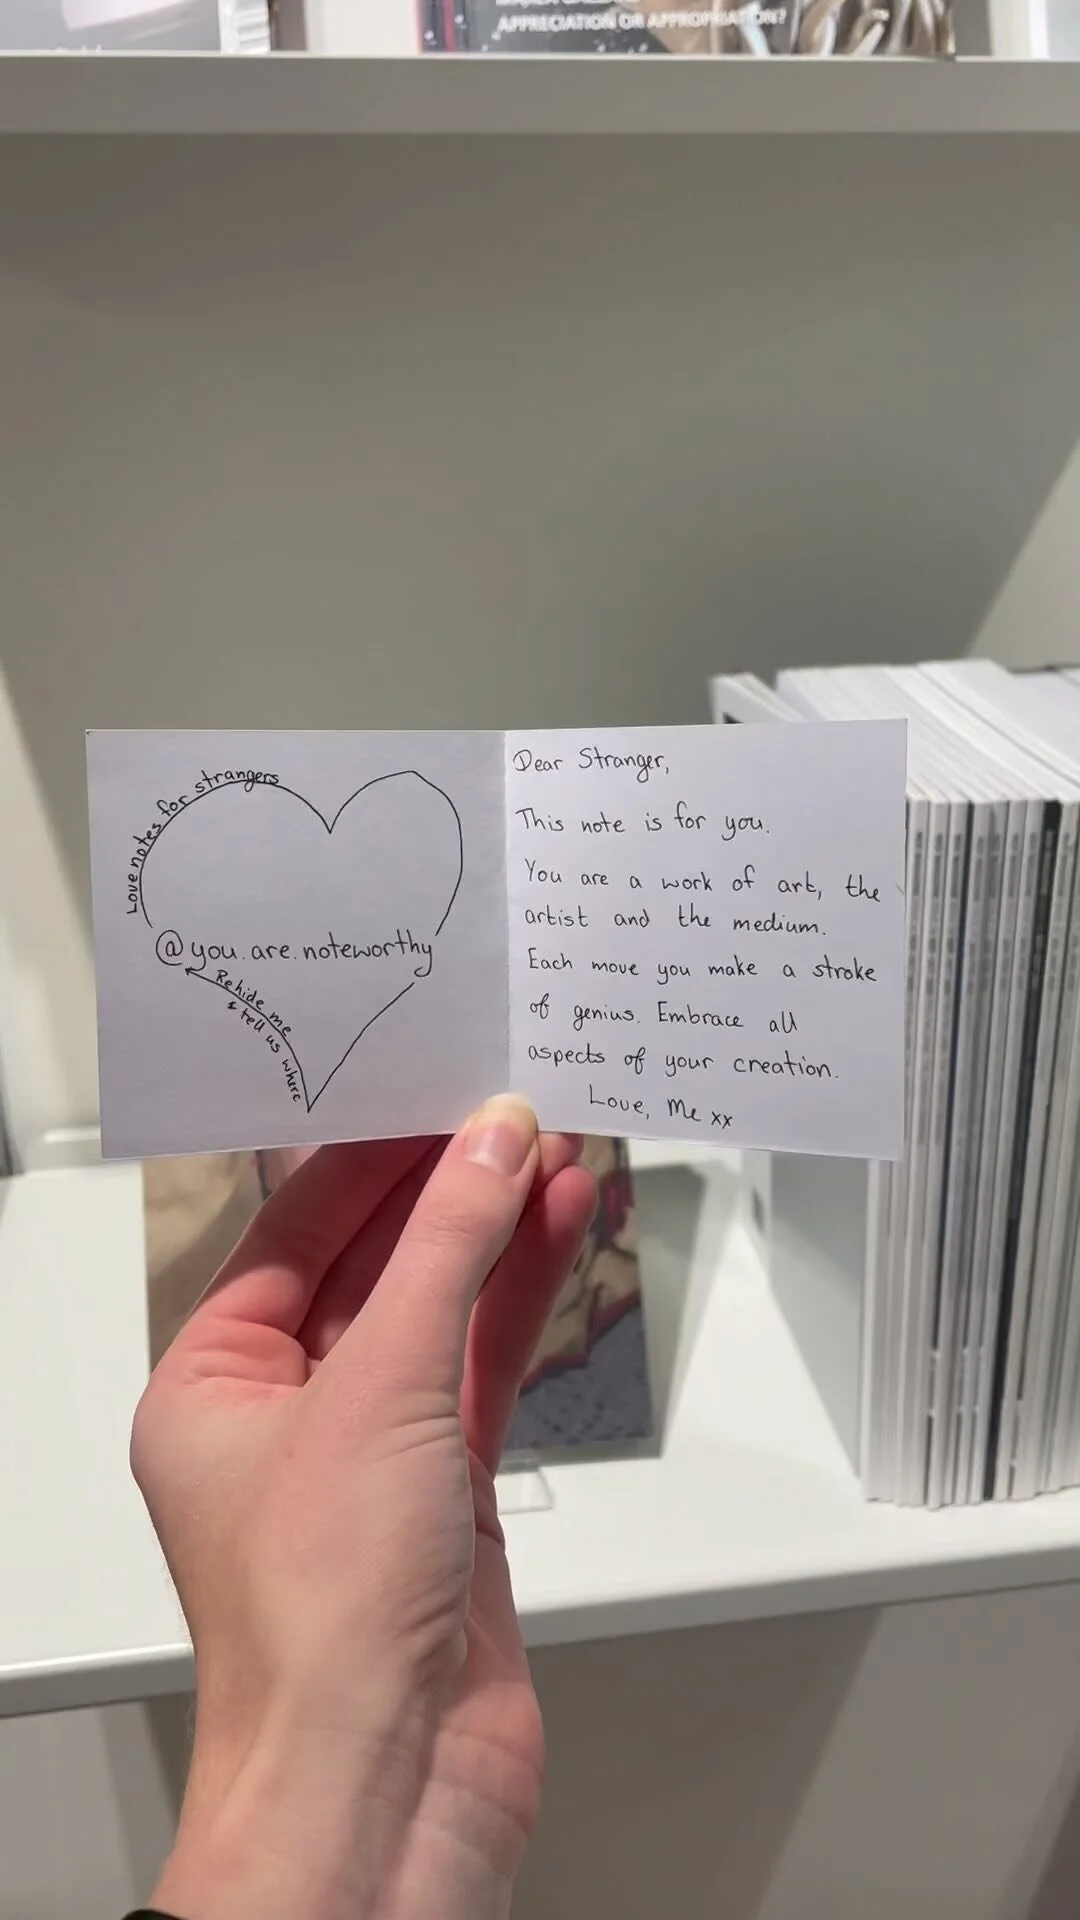 APPRECIATION OR APPROPRIATION?
Love notes for strangers
@you.are.noteworthy
Rehide me
& tell us where
Dear Stranger,
This note is for you.
You are a work of art, the
artist and the medium.
Each move you make a stroke
of genius. Embrace all
aspects of your creation.
Love, Me xx